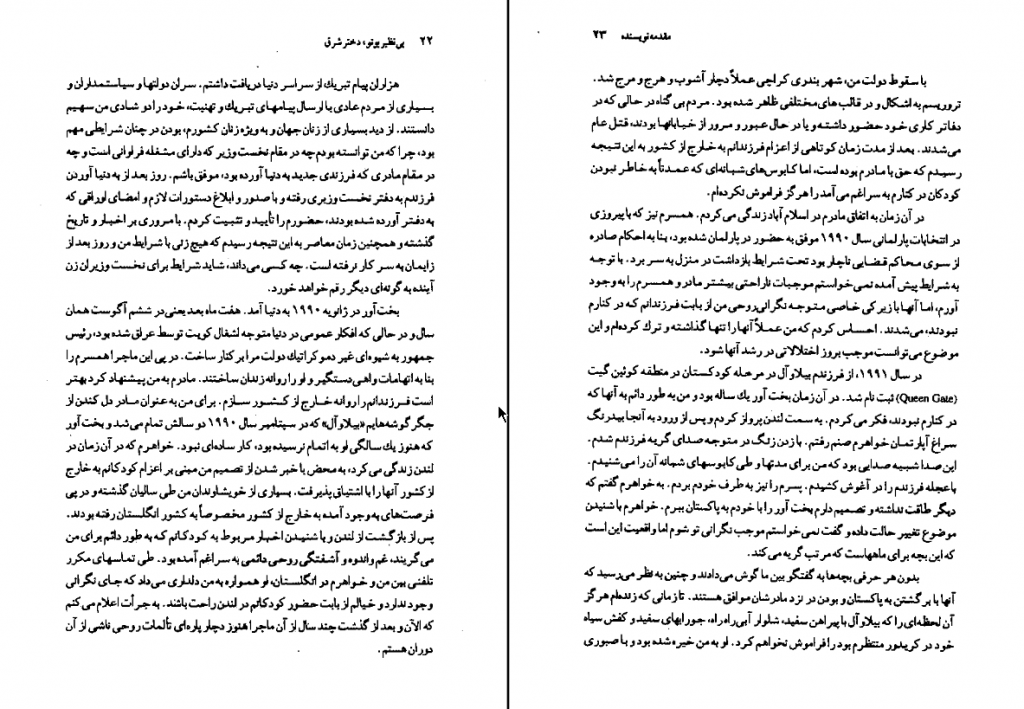 ۲۲ بی‌نظیر بوتو، دختر شرق
هزاران پیام تبریک از سراسر دنیا دریافت داشتم. سران دولتها و سیاستمداران و
بسیاری از مردم عادی با ارسال پیامهای تبریک و تهنیت، خود را دو شادی من سهیم
دانستند. از دید بسیاری از زنان جهان و به ویژه زنان کشورم، بودن در چنان شرایطی مهم
بود، چرا که من توانسته بودم چه در مقام نخست وزیر که دارای مشغله فراوانی است و چه
در مقام مادری که فرزندی جدید به دنیا آورده بود، موفق باشم. روز بعد از به دنیا آوردن
فرزندم به دفتر نخست وزیری رفته و با صدور و ابلاغ دستورات لازم و امضای اوراقی که
به دفتر آورده شده بودند، حضورم را تأیید و تثبیت کردم. با مروری بر اخبار و تاریخ
گذشته و همچنین زمان معاصر به این نتیجه رسیدم که هیچ زنی با شرایط من و روز بعد از
زایمان به سر کار نرفته است. چه کسی می‌داند، شاید شرایط برای نخست وزیران زن
آینده به گونه‌ای دیگر رقم خواهد خورد.
بخت‌آور در ژانویه ۱۹۹۰ به دنیا آمد. هفت ماه بعد یعنی در ششم آگوست همان
سال و در حالی که افکار عمومی در دنیا متوجه اشغال کویت توسط عراق شده بود، رئیس
جمهور به شیوه‌ای غیر دموکراتیک دولت مرا بر کنار ساخت. در پی این ماجرا همسرم را
بنا به اتهامات واهی دستگیر و او را روانه زندان ساختند. مادرم به من پیشنهاد کرد بهتر
است فرزندانم را روانه خارج از کشور سازم. برای من به عنوان مادر دل کندن از
جگر گوشه‌هایم «بیلاوآل» که در سپتامبر سال ۱۹۹۰ دو سالش تمام می‌شد و بخت آور
که هنوز یک سالگی او به اتمام نرسیده بود، کار ساده‌ای نبود. خواهرم که در آن زمان در
لندن زندگی می‌کرد، به محض با خبر شدن از تصمیم من مبنی بر اعزام کودکانم به خارج
از کشور آنها را با اشتیاق پذیرفت. بسیاری از خویشاوندان من طی سالیان گذشته و در پی
فرصت‌های به وجود آمده به خارج از کشور مخصوصاً به کشور انگلستان رفته بودند.
پس از بازگشت از لندن و با شنیدن اخبار مربوط به کودکانم که به طور دائم برای من
می‌گریند، غم و اندوه و آشفتگی روحی دائمی به سراغم آمده بود. طی تماسهای مکرر
تلفنی بین من و خواهرم در انگلستان، او همواره به من دلداری می‌داد که جای نگرانی
وجود ندارد و خیالم از بابت حضور کودکانم در لندن راحت باشد. به جرأت اعلام می‌کنم
که الآن و بعد از گذشت چند سال از آن ماجرا هنوز دچار پاره‌ای تألمات روحی ناشی از آن
دوران هستم.
مقدمه نویسنده ۲۳
با سقوط دولت من، شهر بندری کراچی عملاً دچار آشوب و هرج و مرج شد.
تروریسم به اشکال و در قالب های مختلفی ظاهر شده بود. مردم بی گناه در حالی که در
دفاتر کاری خود حضور داشته و یا در حال عبور و مرور از خیابانها بودند، قتل عام
می‌شدند. بعد از مدت زمان کوتاهی از اعزام فرزندانم به خارج از کشور به این نتیجه
رسیدم که حق با مادرم بوده است، اما کابوس‌های شبانه‌ای که عمدتاً به خاطر نبودن
کودکان در کنارم به سراغم می‌آمد را هرگز فراموش نکرده‌ام.
در آن زمان به اتفاق مادرم در اسلام آباد زندگی می‌کردم. همسرم نیز که با پیروزی
در انتخابات پارلمانی سال ۱۹۹۰ موفق به حضور در پارلمان شده بود، بنا به احکام صادره
از سوی محاکم قضایی ناچار بود تحت شرایط بازداشت در منزل به سر برد. با توجه
به شرایط پیش آمده نمی خواستم موجبات ناراحتی بیشتر مادر و همسرم را به وجود
آورم، اما آنها با زیرکی خاصی متوجه نگرانی روحی من از بابت فرزندانم که در کنارم
نبودند، می‌شدند. احساس کردم که من عملاً آنها را تنها گذاشته و ترک کرده‌ام و این
موضوع می‌توانست موجب بروز اختلالاتی در رشد آنها شود.
در سال ۱۹۹۱، از فرزندم بیلاوآل در مرحله کودکستان در منطقه کوئین گیت
(Queen Gate) ثبت نام شد. در آن زمان بخت آور یک ساله بود و من به طور دائم به آنها که
در کنارم نبودند، فکر می‌کردم. به سمت لندن پرواز کردم و پس از ورود به آنجا بیدرنگ
سراغ آپارتمان خواهرم صنم رفتم. با زدن زنگ در متوجه صدای گریه فرزندم شدم.
این صدا شبیه صدایی بود که من برای مدتها و طی کابوسهای شبانه آن را می‌شنیدم.
با عجله فرزندم را در آغوش کشیدم. پسرم را نیز به طرف خودم بردم. به خواهرم گفتم که
دیگر طاقت نداشته و تصمیم دارم بخت آور را با خودم به پاکستان ببرم. خواهرم با شنیدن
موضوع تغییر حالت داده و گفت نمی خواستم موجب نگرانی تو شوم اما واقعیت این است
که این بچه برای ماههاست که مرتب گریه می‌کند.
بدون هر حرفی بچه‌ها به گفتگو بین ما گوش می‌دادند و چنین به نظر می‌رسید که
آنها با بر گشتن به پاکستان و بودن در نزد مادرشان موافق هستند. تا زمانی که زنده‌ام هرگز
آن لحظه‌ای را که بیلاوآل با پیراهن سفید، شلوار آبی راه راه، جورابهای سفید و کفش سیاه
خود در کریدور منتظرم بود را فراموش نخواهم کرد. او به من خیره شده بود و با صبوری